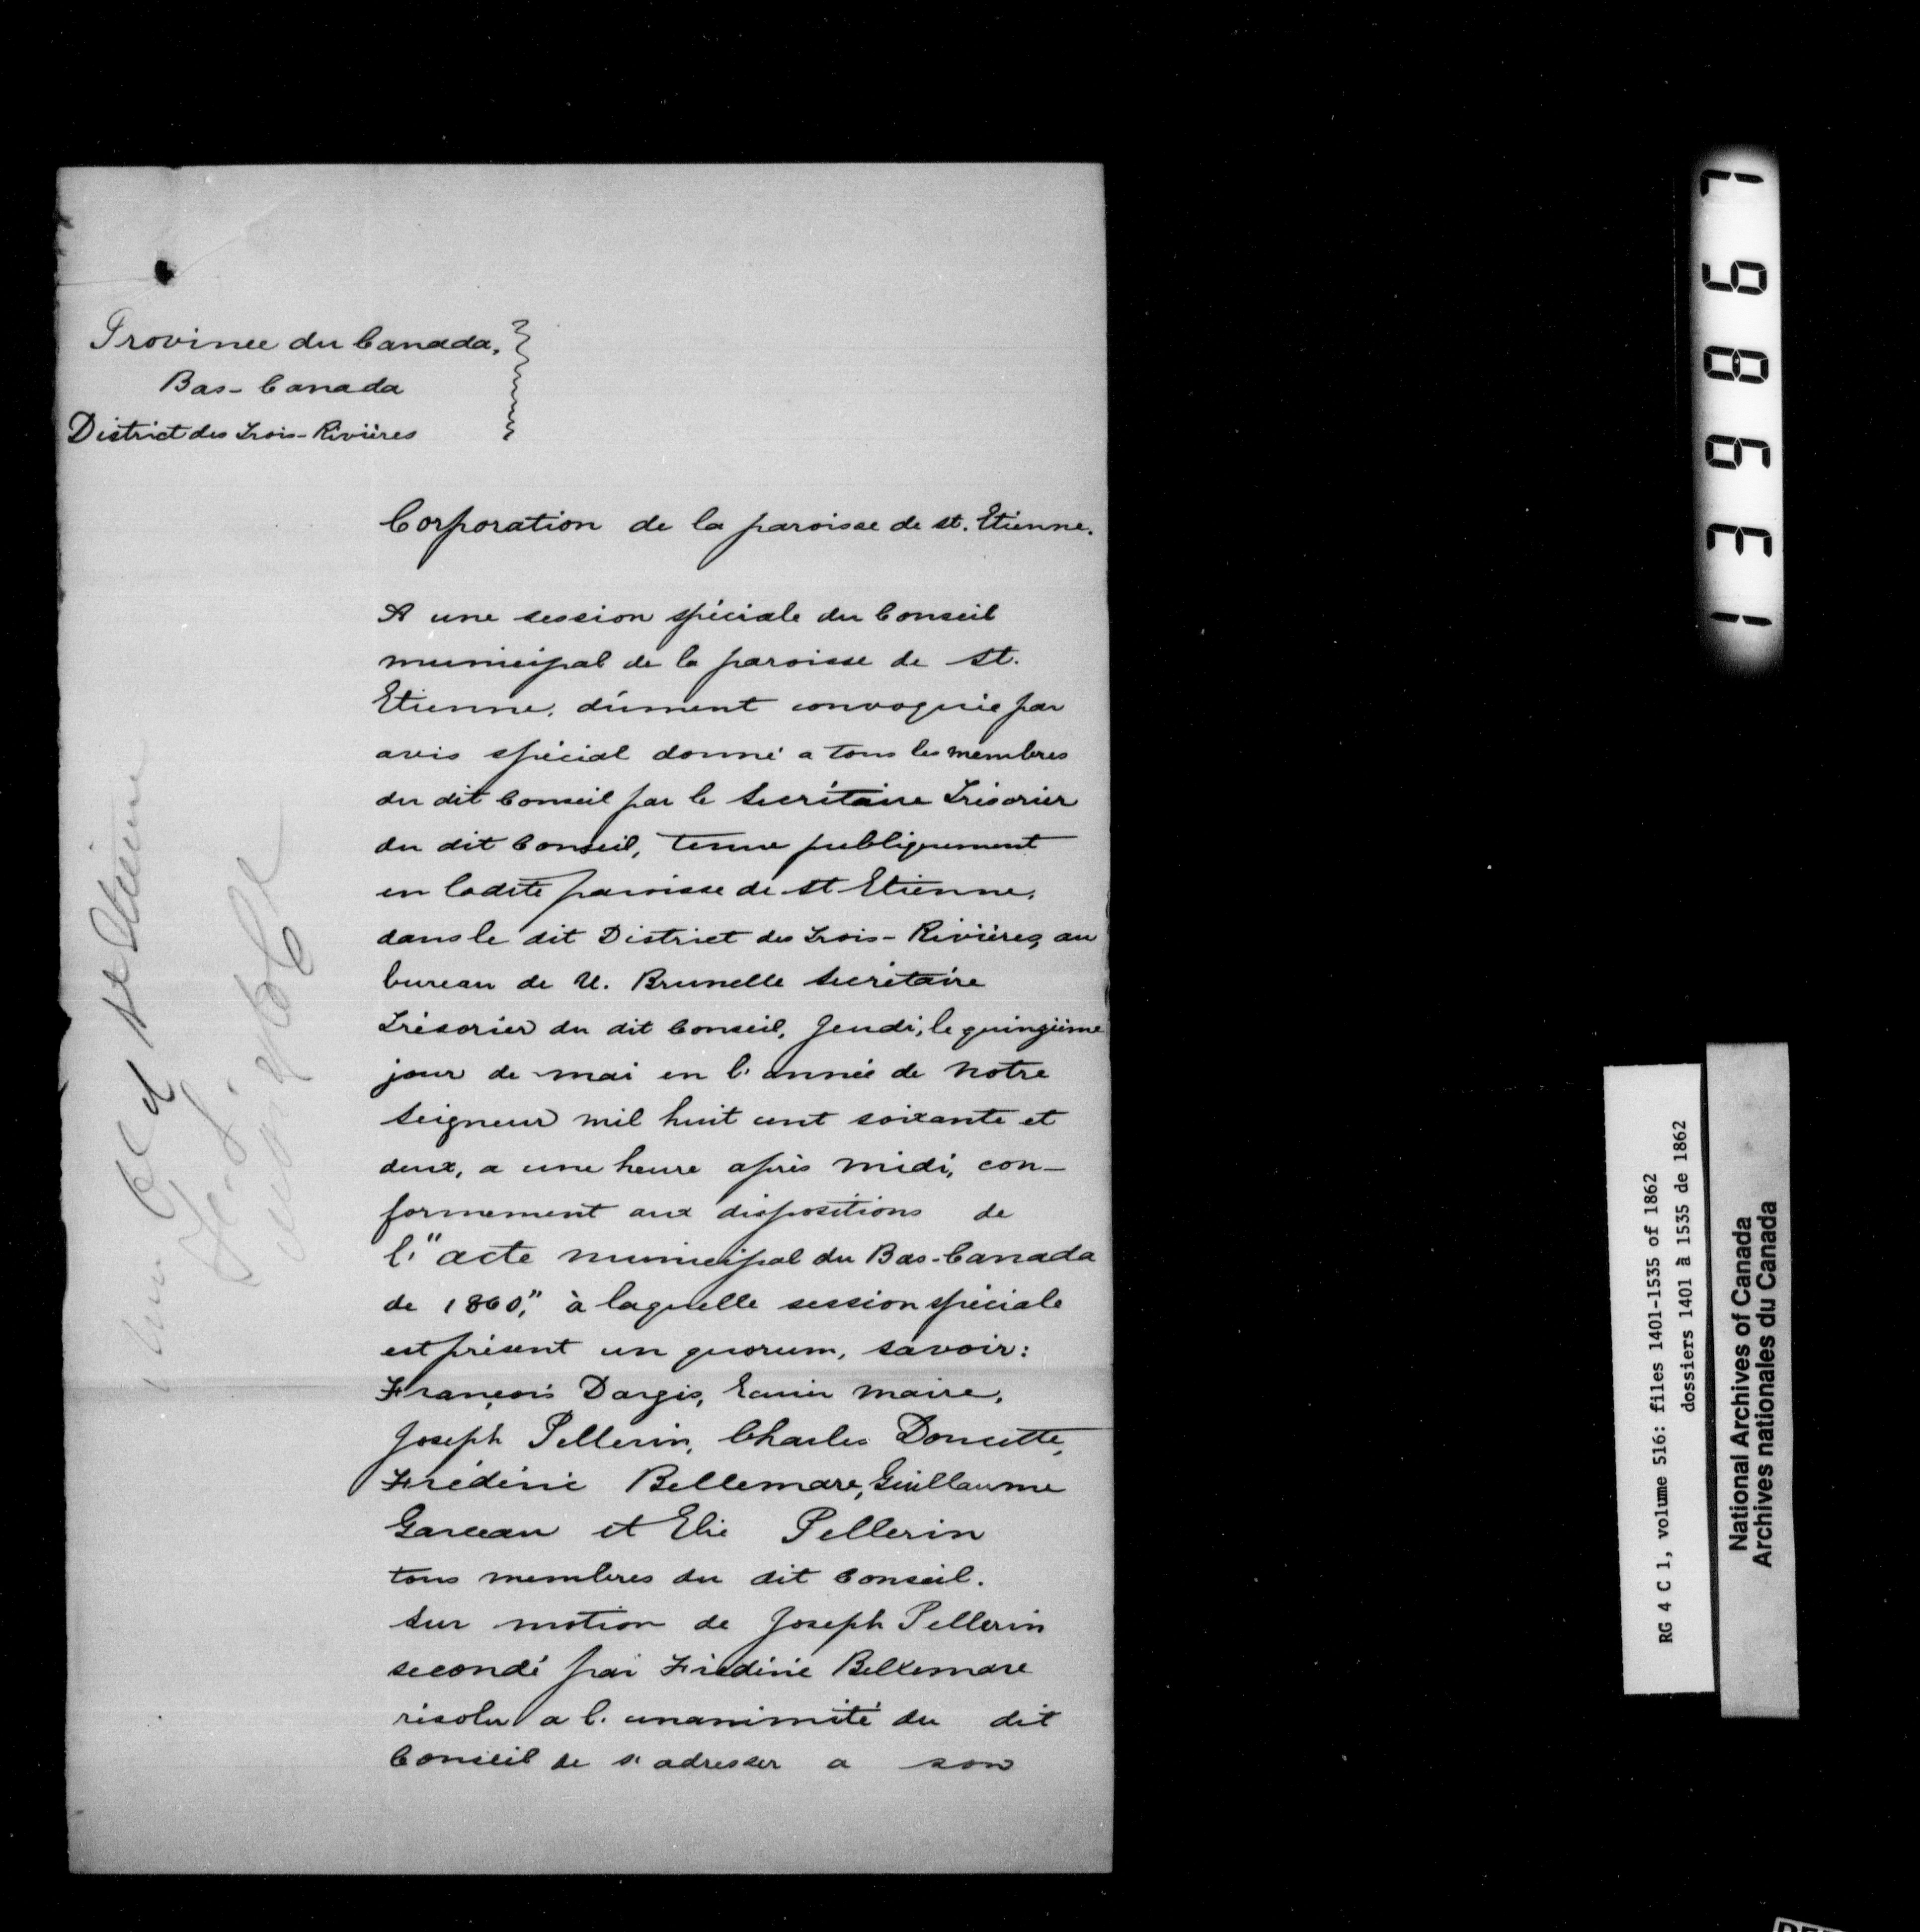 Province du Canada,
Bas-Canada
District des Trois-Rivières
Corporation de la paroisse de st. Etienne.
A une session spéciale du Conseil
municipal de la paroisse de st.
Etienne, dûment convoquée par
avis spécial donné a tous les membres
du dit Conseil par le Secrétaire Trésorier
du dit Conseil, tenue publiquement
en ladite paroisse de st Etienne,
dans le dit District des Trois-Rivières, au
bureau de U. Brunelle Secrétaire
Trésorier du dit Conseil, Jeudi, le quinzième
jour de mai en l'année de Notre
Seigneur mil huit cent soixante et
deux, a une heure après midi, con-
formement aux dispositions de
l'"acte municipal du Bas-Canada
de 1860," à laquelle session spéciale
est présent un quorum, savoir:
François Dargis, Ecuier maire,
Joseph Pellerin, Charles Doucette,
Frédéric Bellemare, Guillaume
Garceau et Elie Pellerin
tous membres du dit Conseil.
Sur motion de Joseph Pellerin
secondé par Frédéric Bellemare
résolu a l'unanimité du dit
Conseil de s'adresser a son
st Etienne
139867
RG 4 C 1, volume 516: files 1401-1535 of 1862
dossiers 1401 à 1535 de 1862
National Archives of Canada
Archives nationales du Canada